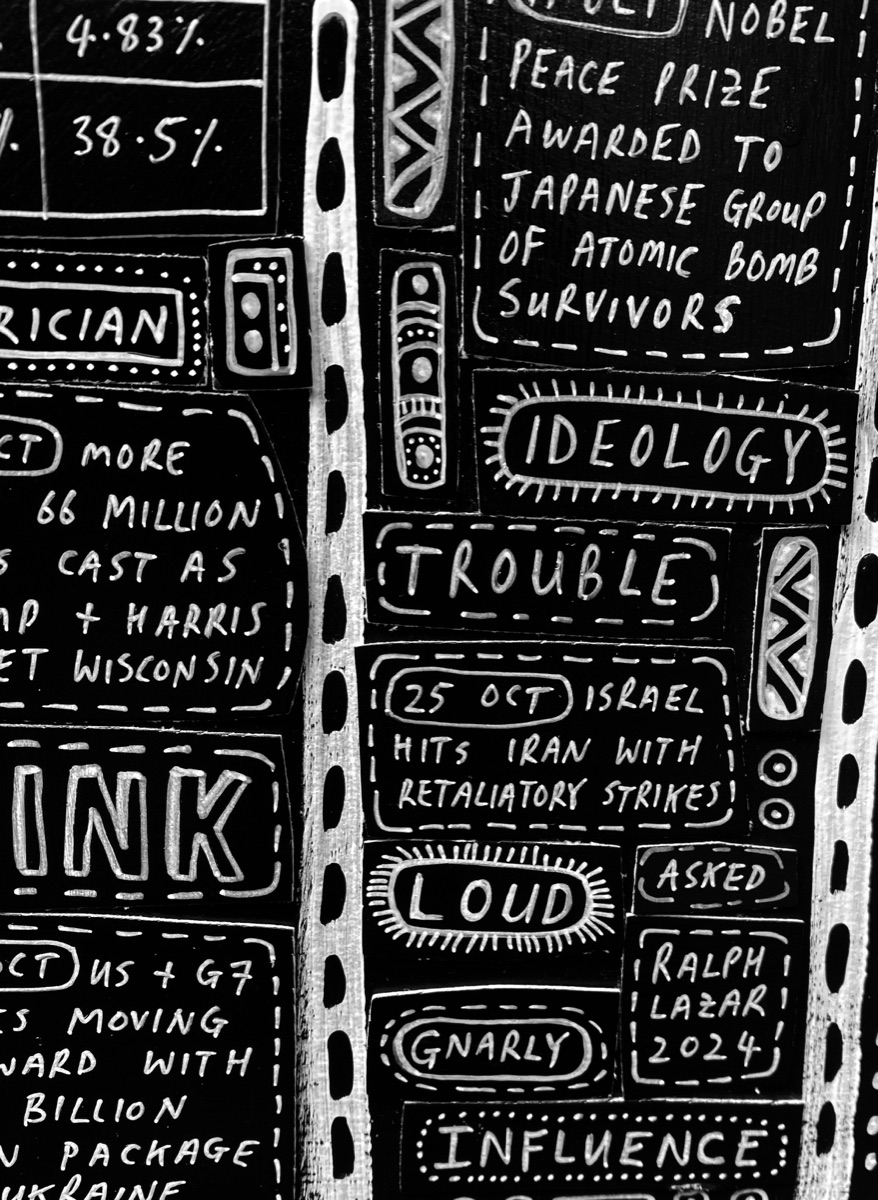 4.83%
38.5%
RICIAN
CT MORE
66 MILLION
S CAST AS
MP + HARRIS
ET WISCONSIN
INK
OCT US + G7
IS MOVING
WARD WITH
BILLION
N PACKAGE
UKRAINE
NOBEL
PEACE PRIZE
AWARDED TO
JAPANESE GROUP
OF ATOMIC BOMB
SURVIVORS
IDEOLOGY
TROUBLE
25 OCT ISRAEL
HITS IRAN WITH
RETALIATORY STRIKES
LOUD
ASKED
RALPH
LAZAR
2024
GNARLY
INFLUENCE